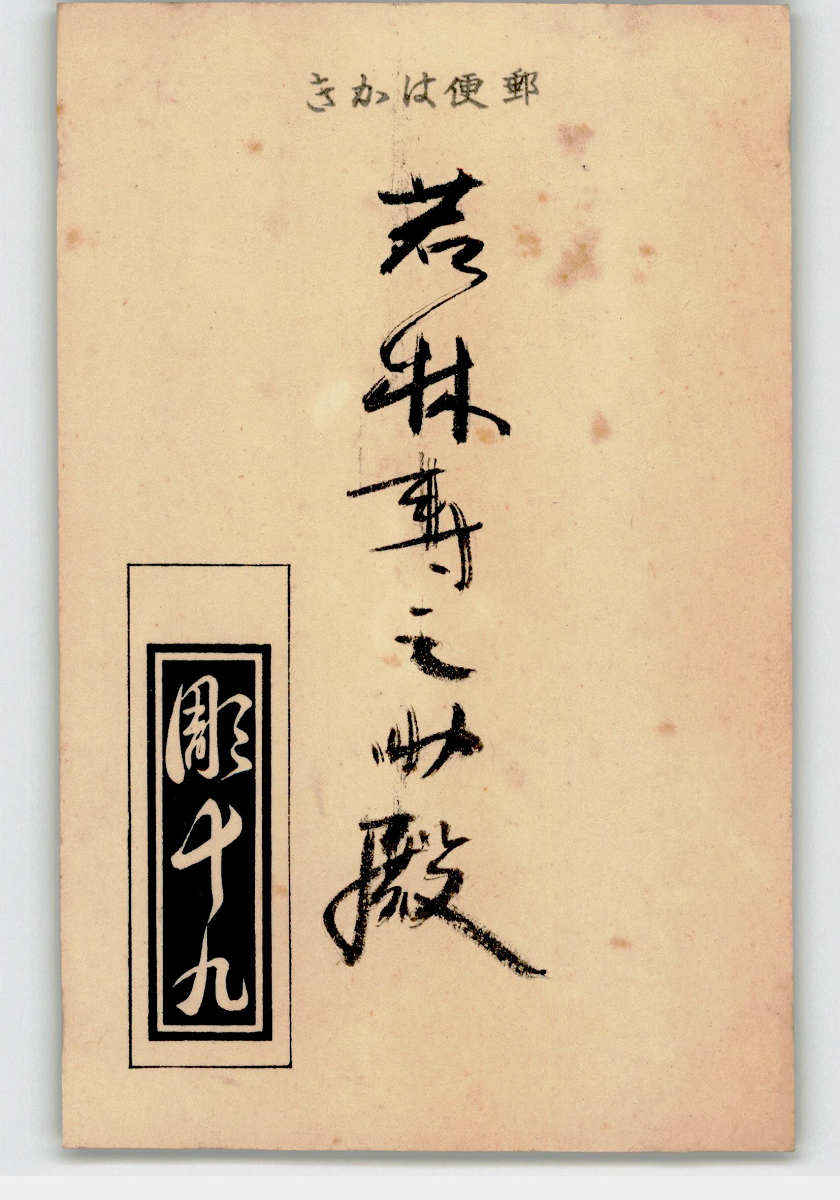 郵便はかき
若林寿之助殿
彫十九